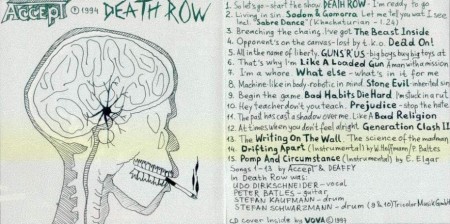 Accept © 1994 DEATH ROW
1. So let's go - start the show DEATH ROW - I'm ready to go
2. Living in sin. Sodom & Gomorra Let me tell you what I see
Incl. "Sabre Dance" (Khachaturian - 1.24)
3. Breaching the chains, I've got The Beast Inside
4. Opponent's on the canvas - lost by t.k.o. Dead On!
5. All in the name of liberty. GUNS'R'US - big boys, buy big toys at
6. That's why I'm Like A Loaded Gun A man with a mission
7. I'm a whore. What else - what's in it for me
8. Machine-like in body - robotic in mind Stone Evil - inherited sin
9. Begin the game Bad Habits Die Hard I'm stuck in a rut
10. Hey teacher don't you teach. Prejudice - stop the hate
11. The past has cast a shadow over me. Like A Bad Religion
12. At times when you don't feel alright Generation Clash II
13. The Writing On The Wall. The science of the madman
14. Drifting Apart (Instrumental) by W. Hoffmann / P. Baltes
15. Pomp And Circumstance (Instrumental) by E. Elgar
Songs 1-13 by Accept & DEAFFY
In Death Row was:
UDO DIRKSCHNEIDER - vocal
PETER BATLES - guitar
STEFAN KAUFMANN - drum
STEFAN SCHWARZMANN - drum (9 & 10) Tricolor Musik GmbH
CD cover inside by VOVA © 1997